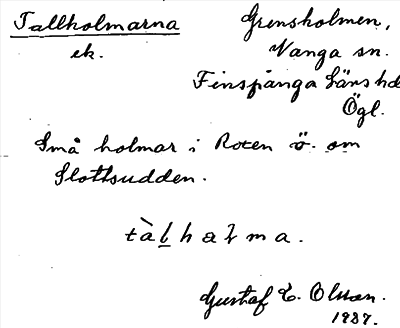 Tallholmarna
ek.
Grensholmen,
Vånga sn.
Finspånga Läns hd
Ögl.
Små holmar i Roxen ö. om
Slottsudden.
tàl̲hałma.
Gustaf E. Olsson.
1937.